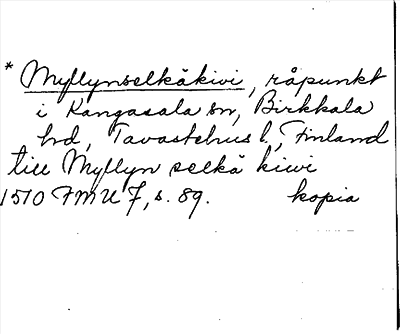 * Myllynselkäkivi, råpunkt
i Kangasala sn, Birkkala
hd, Tavastehus l., Finland
till Myllyn selkä kiwi
1510 FMU 7, s. 89. kopia